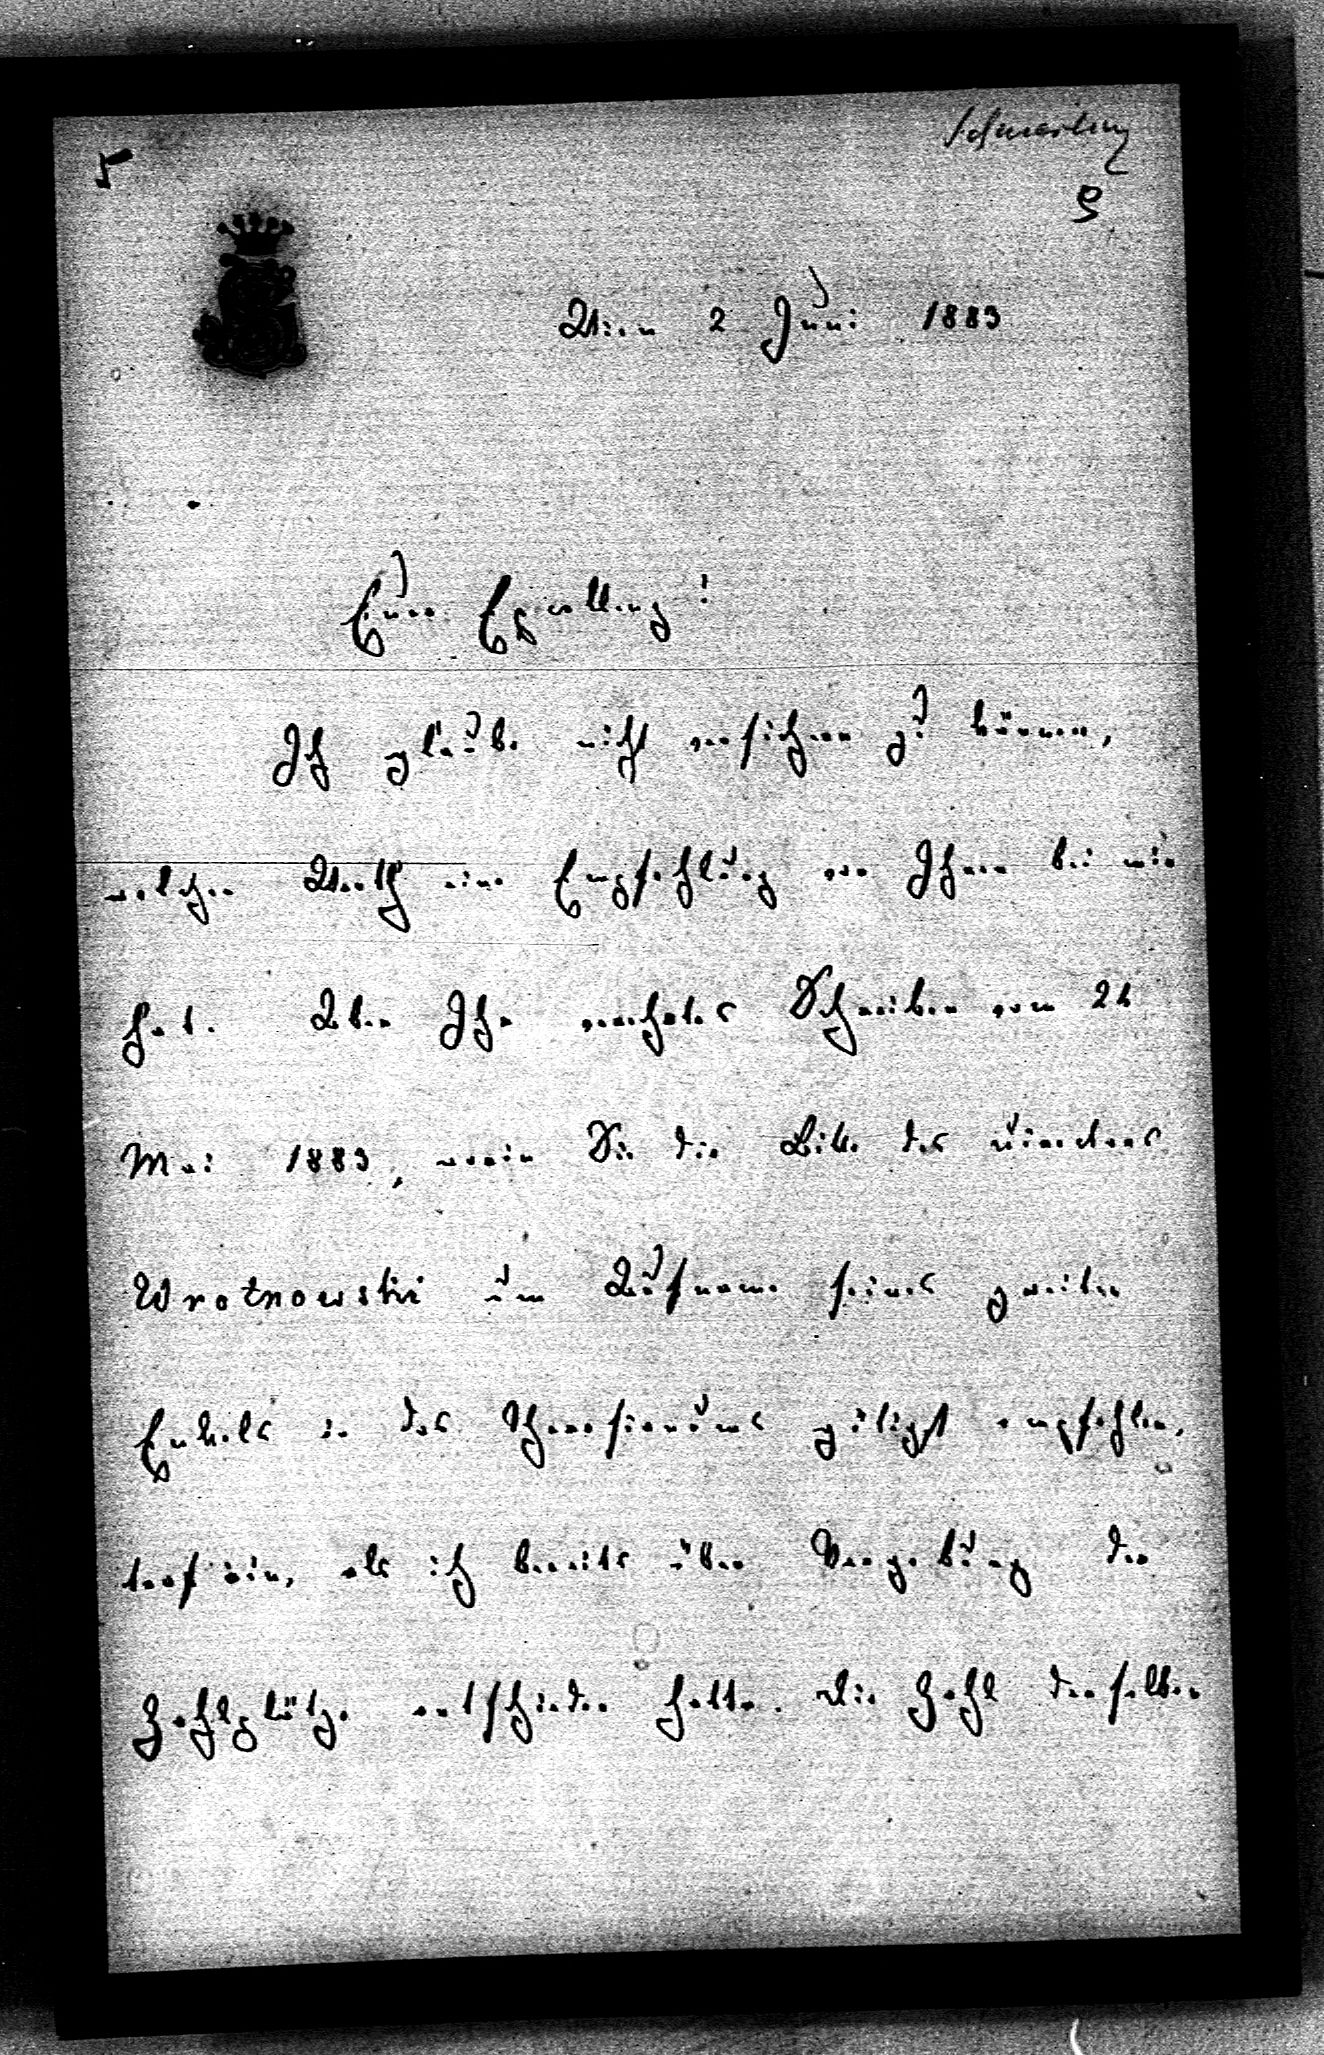 5
Schmerling
9
Wien 2 Juni 1883
Euer Exzellenz!
Ich glaube nicht versichern zu können,
welchen Werth eine Empfehlung von Ihnen bei mir
hat. Aber Ihr verehrtes Schreiben vom 22
Mai 1883, worin Sie die Bitte des
Wrotnowski um Aufname seines zweiten
Enkels in das Theresianum gütigst empfehlen,
traf ein, als ich bereits über Vergebung der
Zahlplätze entschieden hatte. Die Zahl derselben